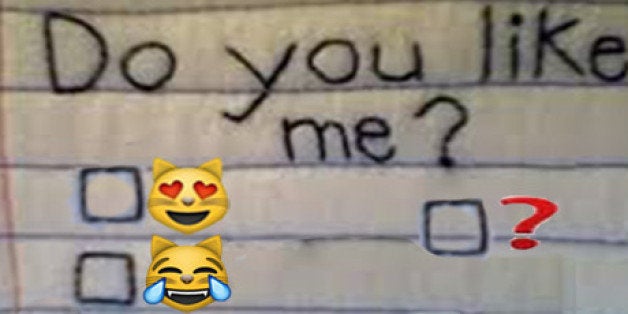 Do you like
me?
❓